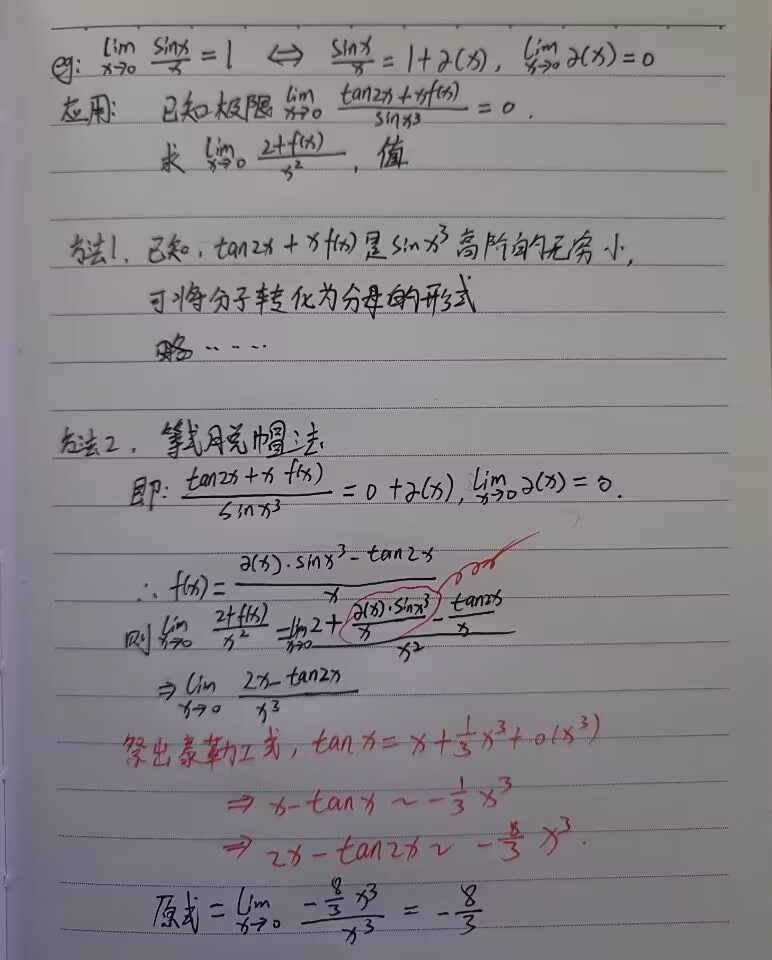 eg: lim x→0 sinx/x = 1 ⇔ sinx/x = 1+∂(x), lim x→0 ∂(x) = 0
应用: 已知极限 lim x→0 (tan2x + xf(x))/sinx³ = 0.
求 lim x→0 (2+f(x))/x², 值
方法1、已知, tan2x + xf(x) 是 sinx³ 高阶的无穷小,
可将分子转化为分母的形式
略……
方法2、等式脱帽法
即: (tan2x + x f(x))/sinx³ = 0 + ∂(x), lim x→0 ∂(x) = 0.
∴ f(x) = (∂(x)·sinx³ - tan2x)/x
则 lim x→0 (2+f(x))/x² = lim x→0 (2 + ∂(x)·sinx³/x - tan2x/x)/x²
⇒ lim x→0 (2x - tan2x)/x³
祭出泰勒公式, tanx = x + 1/3 x³ + o(x³)
⇒ x - tanx ~ -1/3 x³
⇒ 2x - tan2x ~ -8/3 x³.
原式 = lim x→0 (-8/3 x³)/x³ = -8/3